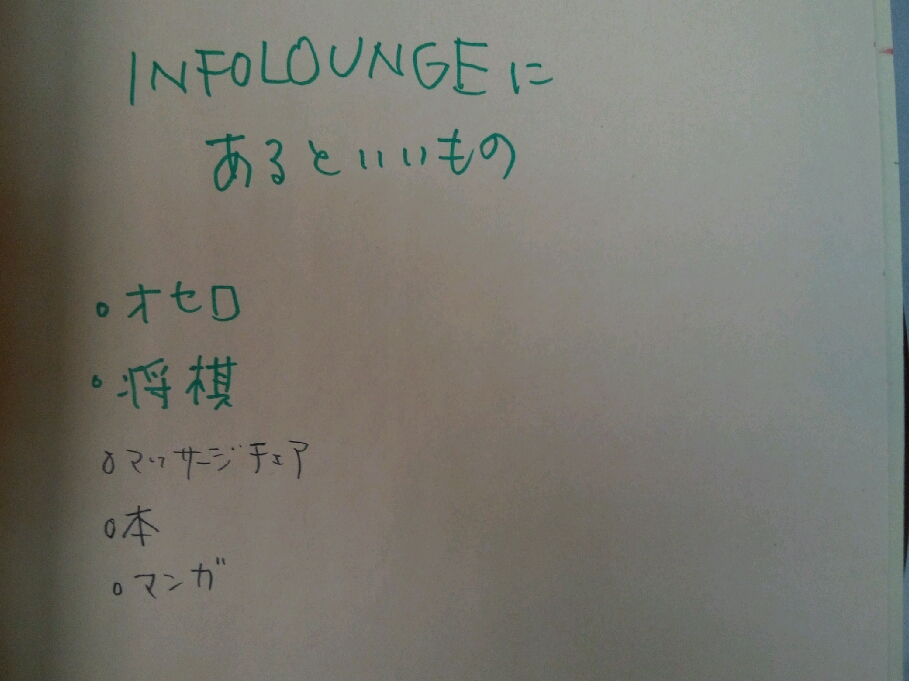 INFOLOUNGEに
あるといいもの
・オセロ
・将棋
・マッサージチェア
・本
・マンガ